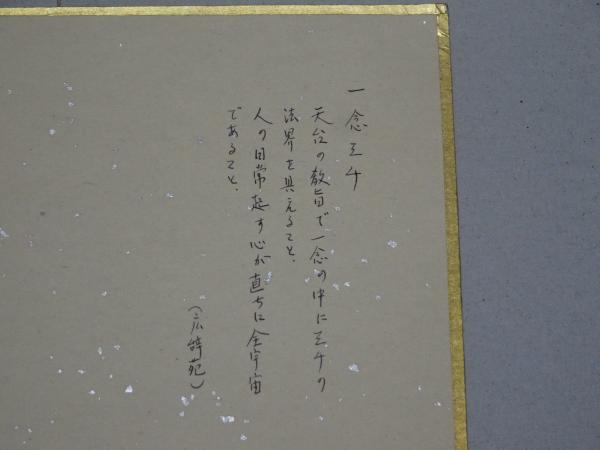 一念三千
天台の教旨で一念の中に三千の
法界を具えること、
人の日常起す心が直ちに全宇宙
であること、
（広辞苑）